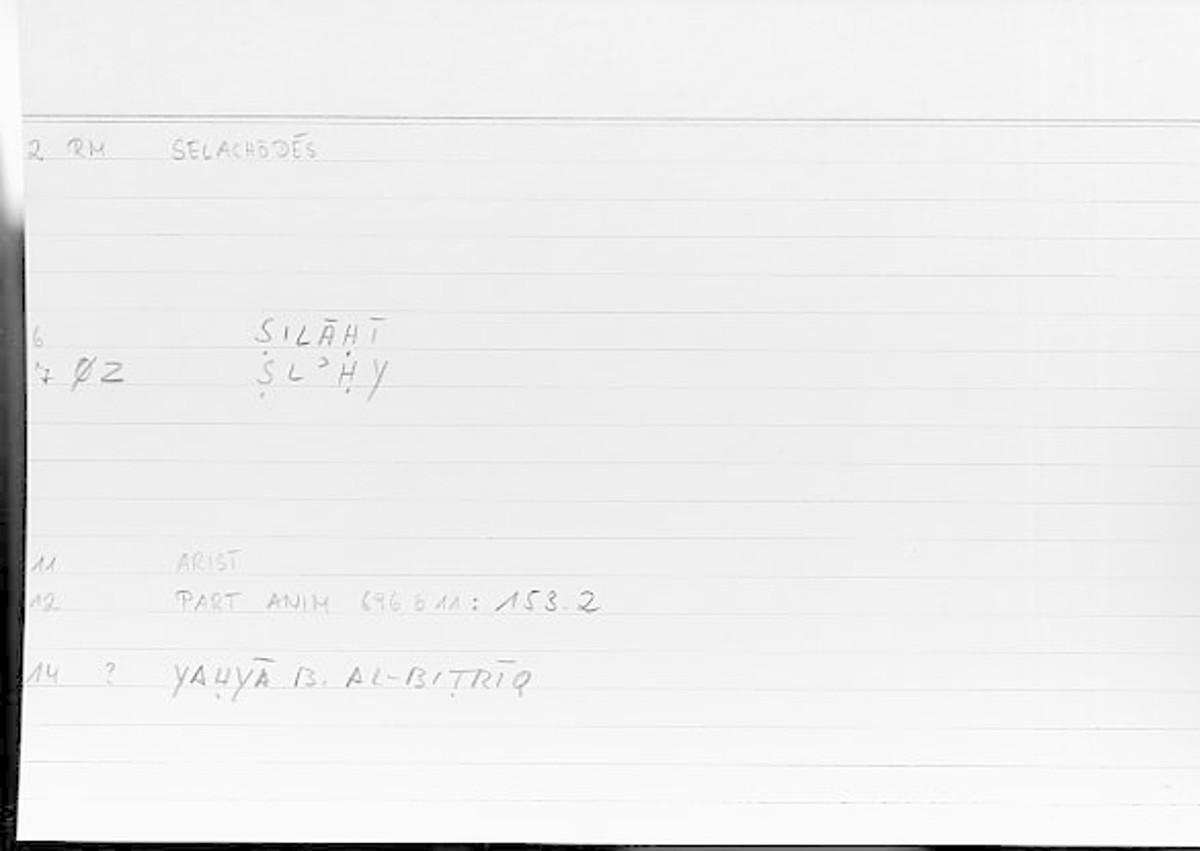 2 RM SELACHŌDĒS
6 ṢILĀḤĪ
7 ØZ ṢLʾḤY
11 ARIST
12 PART ANIM 696 b 11: 153.2
14 ? YAḤYĀ B. AL-BIṬRĪQ